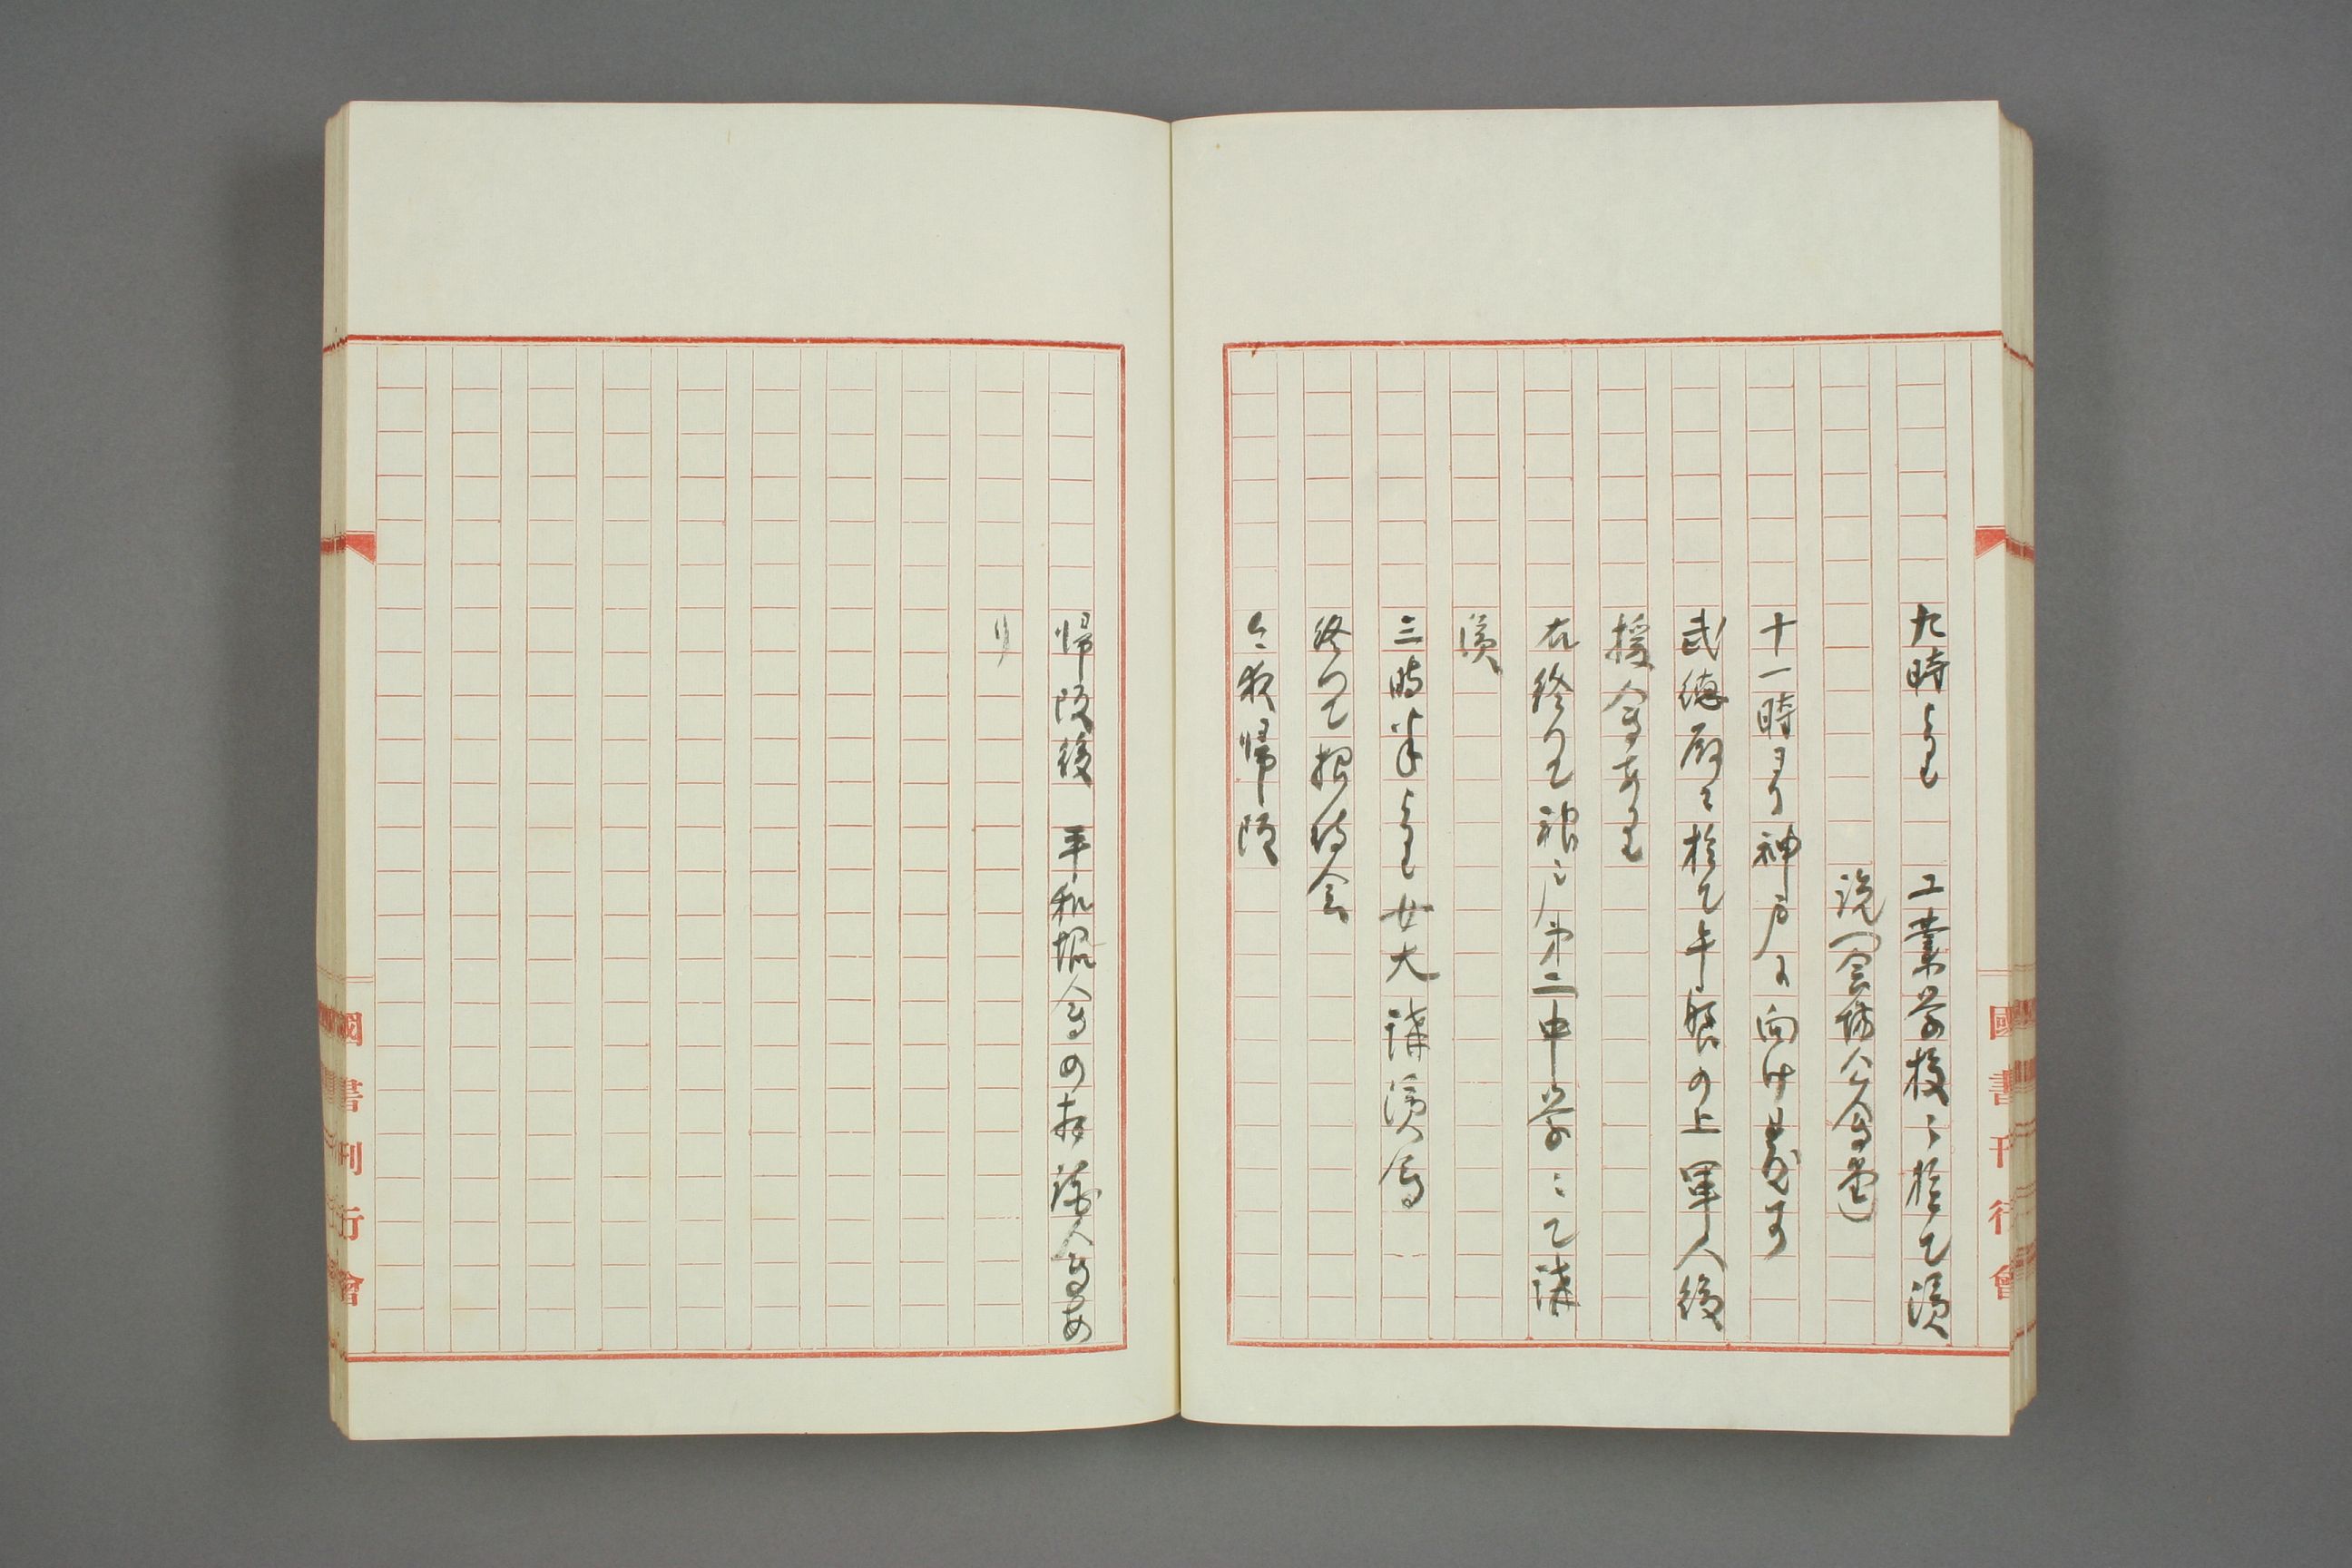 九時より 工業学校に於て演
説(公会堂)
十一時ヨリ神戸に向け出発す
武徳殿に於て午餐の上軍人後
援会あり
右終りて神戸第二中学にて講
演
三時半より女大講演会
終つて招待会
今夜帰阪
帰阪後 平和協会の相談会あ
り
國書刊行會
國書刊行會